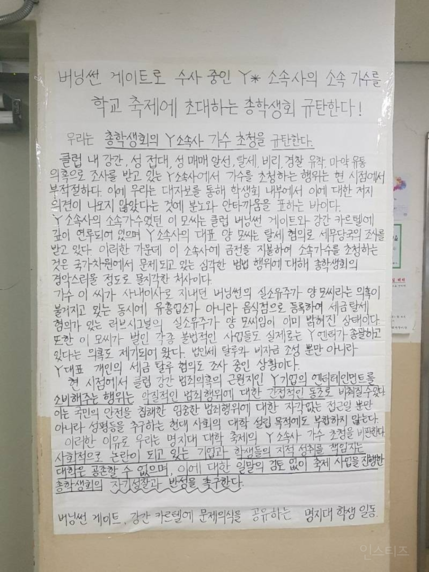 버닝썬 게이트로 수사 중인 Y* 소속사의 소속 가수를
학교 축제에 초대하는 총학생회 규탄한다!
우리는 총학생회의 Y소속사 가수 초청을 규탄한다.
클럽 내 강간, 성 접대, 성 매매 알선, 탈세 비리, 경찰 유착 마약 유통
의혹으로 조사를 받고 있는 Y소속사에서 가수를 초청하는 행위는 현 시점에서
부적절하다. 이에 우리는 대자보를 통해 학생회 내부에서 이에 대한 저지
의견이 나오지 않았다는 것에 분노와 안타까움을 표하는 바이다.
Y 소속사의 소속가수였던 이 모씨는 클럽 버닝썬 게이트와 강간 카르텔에
깊이 연루되어 있으며 Y소속사의 대표 양 모씨는 탈세 혐의로 세무당국의 조사를
받고 있다. 이러한 가운데 이 소속사에 금전을 지불하여 소속가수를 초청하는
것은 국가차원에서 문제되고 있는 심각한 범법 행위에 대해 총학생회의
경각심을 정도로 몰지각한 처사이다.
가수 이 씨가 사내이사로 지내던 버닝썬의 실소유주가 양 모씨라는 의혹이
불거지고 있는 동시에 유흥업소가 아니라 음식점으로 등록하여 세금 탈세
혐의가 있는 러브시그널의 실소유주가 양 모씨임이 이미 밝혀진 상태이다.
또한 이 모씨가 벌인 각종 불법적인 사업들도 실제로는 Y엔터가 총괄하고
있다는 의혹도 제기되어 왔다. 법인세 탈루와 비자금 조성 뿐만 아니라
Y대표 개인의 세금 탈루 혐의도 조사 중인 상황이다.
현 시점에서 클럽 강간 범죄의혹의 근원지인 Y기업의 엔터테인먼트를
소비해주는 행위는 악질적인 범죄행위에 대한 간접적인 동조로 비춰질 수 있다.
이는 국민의 안전을 침해한 엄중한 범죄행위에 대한 자각없는 접근일 뿐만
아니라 성평등을 추구하는 현대 사회의 대학 설립 목적에도 부합하지 않는다.
이러한 이유로 우리는 명지대 대학 축제의 Y소속사 가수 초청을 비판한다.
사회적으로 논란이 되고 있는 기업과 학생들의 지적 성취를 책임지는
대학은 공존할 수 없으며, 이에 대한 일말의 검토 없이 축제 사업을 진행한
총학생회의 자기성찰과 반성을 촉구한다.
버닝썬 게이트, 강간 카르텔에 문제의식을 공유하는 명지대 학생 일동
인스티즈